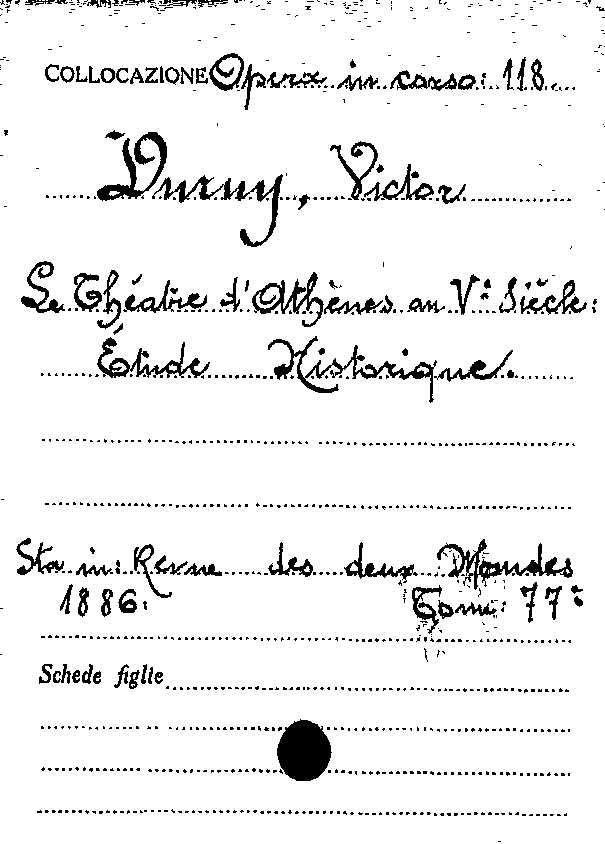 COLLOCAZIONE Opera in corso: 118.
Duruy, Victor
Le Théatre d'Athènes au V.e Siècle:
Étude Historique.
Sta in: Revue des deux Mondes
1886. Tom: 77e
Schede figlie